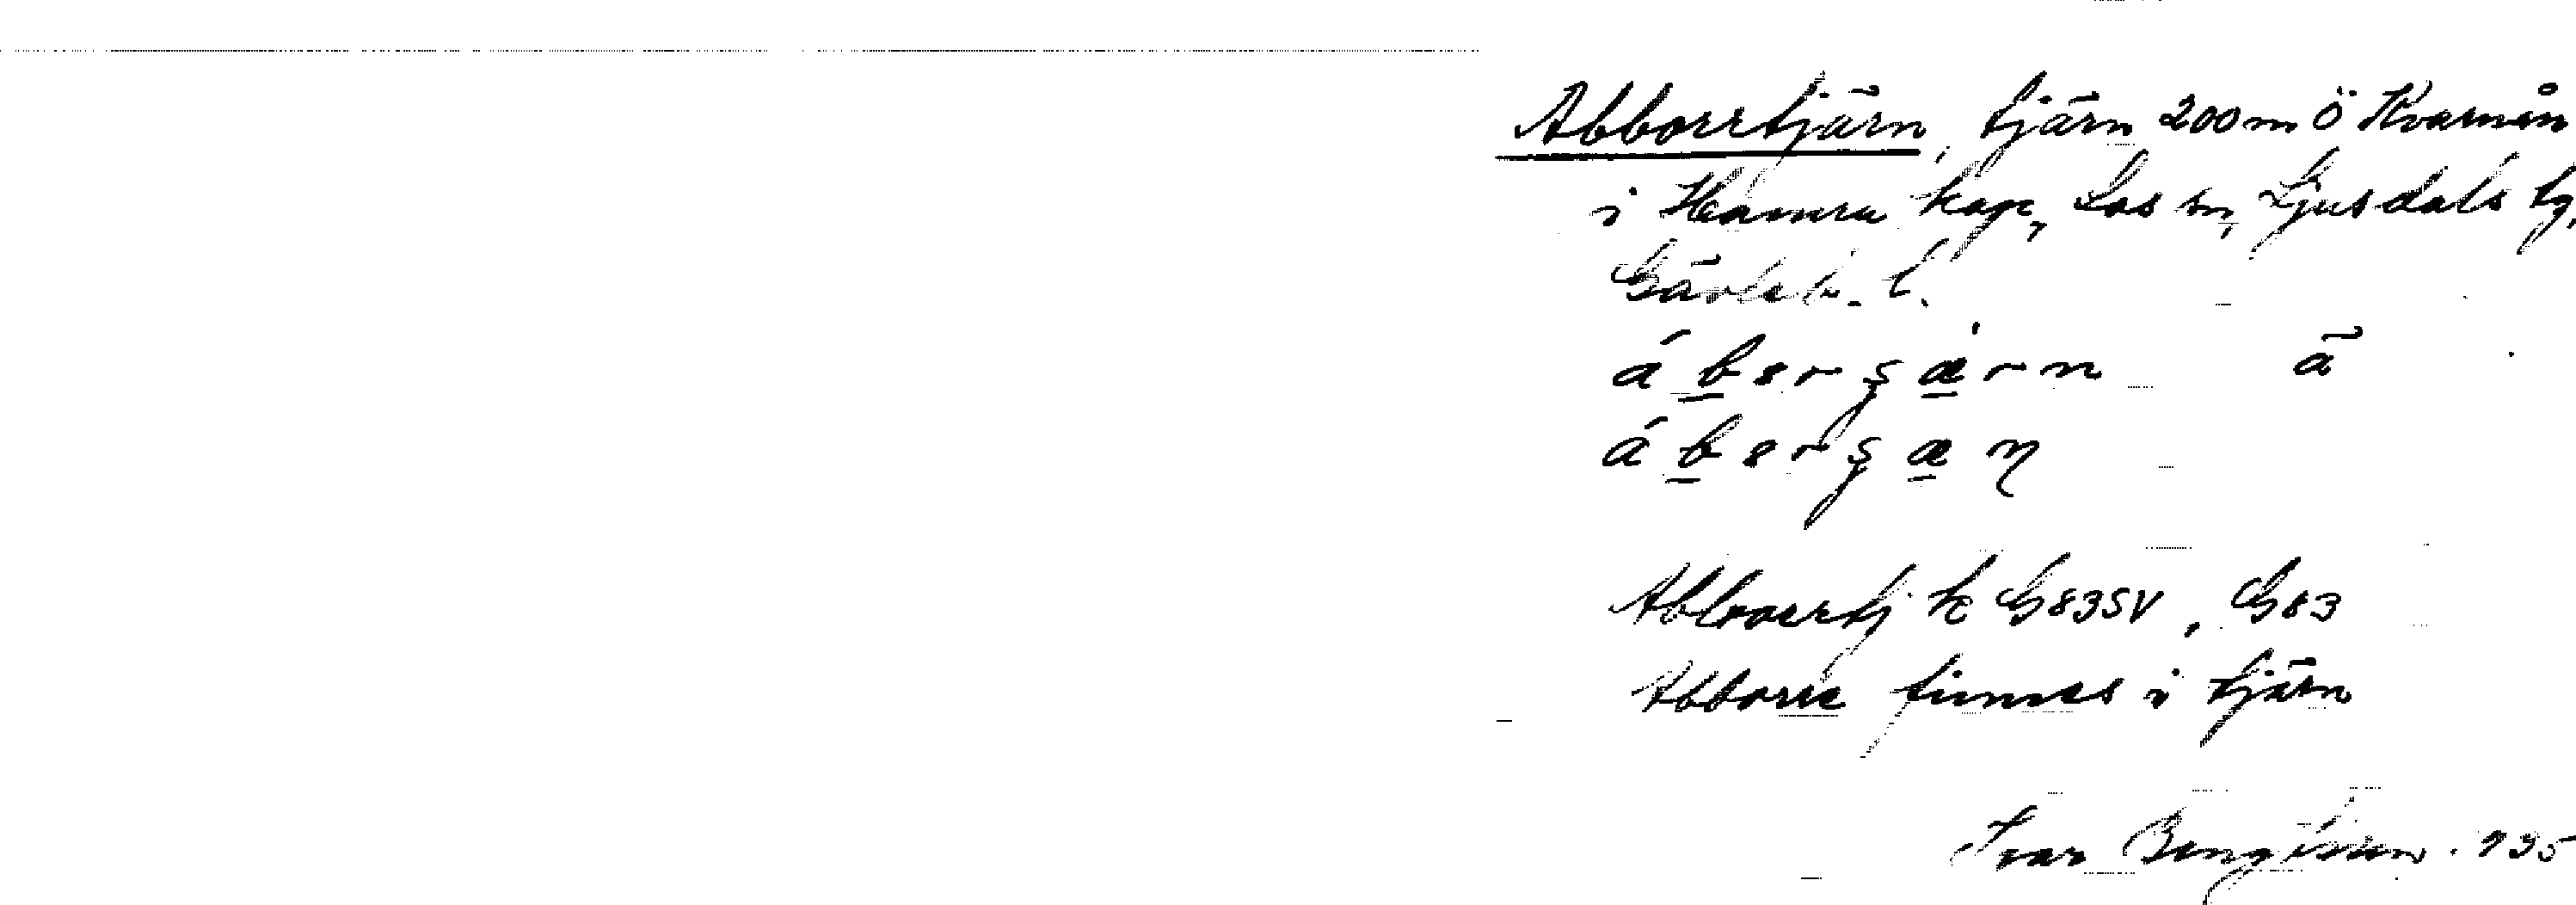 Abborrtjärn, tjärn 200 m Ö Kvarnån
i Hamra kap, Los sn, Ljusdals tg,
Gävleb. l.
á b e r ş æ r n ä
á b e r ş æ η
Abborrtj k G83SV, G83
Abborre finnes i tjärn
Ivar Bengtsson. 935